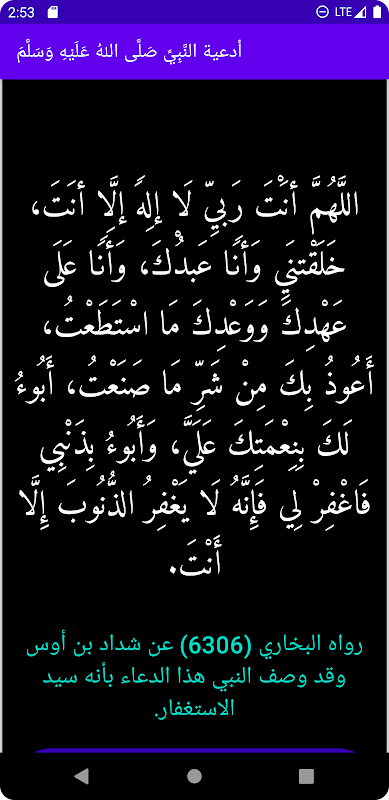 2:53 LTE
أدعية النَّبِيِّ صَلَّى اللهُ عَلَيْهِ وَسَلَّمَ
اللَّهُمَّ أَنْتَ رَبِيِّ لَا إِلهَ إِلَّا أَنتَ،
خَلَقْتنَيِ وَأَنًا عَبدُْكَ، وَأَنًا عَلَى
عَهْدِكَ وَوَعْدِكَ مَا اسْتَطَعْتُ،
أَعُوذُ بِكَ مِنْ شَرِّ مَا صَنَعْتُ، أَبُوءُ
لَكَ بِنِعْمَتِكَ عَلَيَّ، وَأَبُوءُ بِذَنْبِي
فَاغْفِرْ لِي فَإِنَّهُ لَا يَغْفِرُ الذُّنُوبَ إِلَّا
أَنْتَ.
رواه البخاري (6306) عن شداد بن أوس
وقد وصف النبي هذا الدعاء بأنه سيد
الاستغفار.